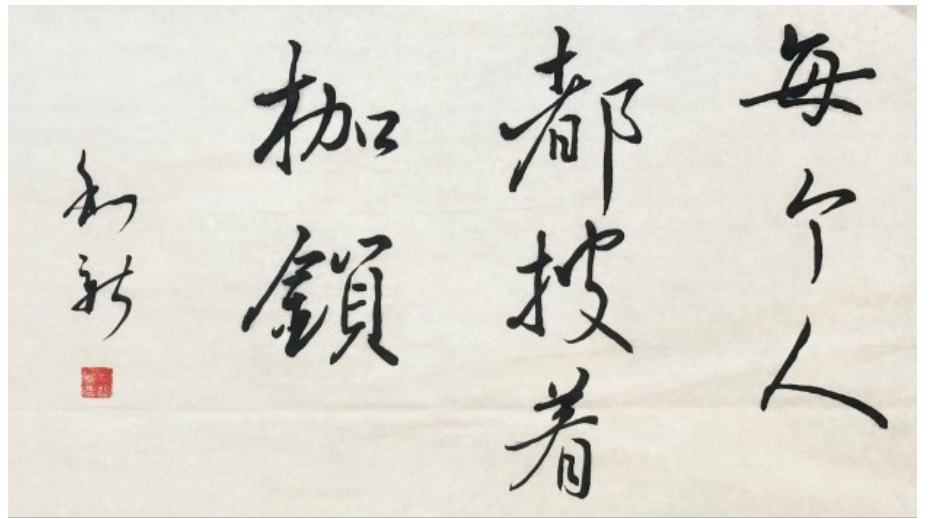 每个人
都披着
枷鎖